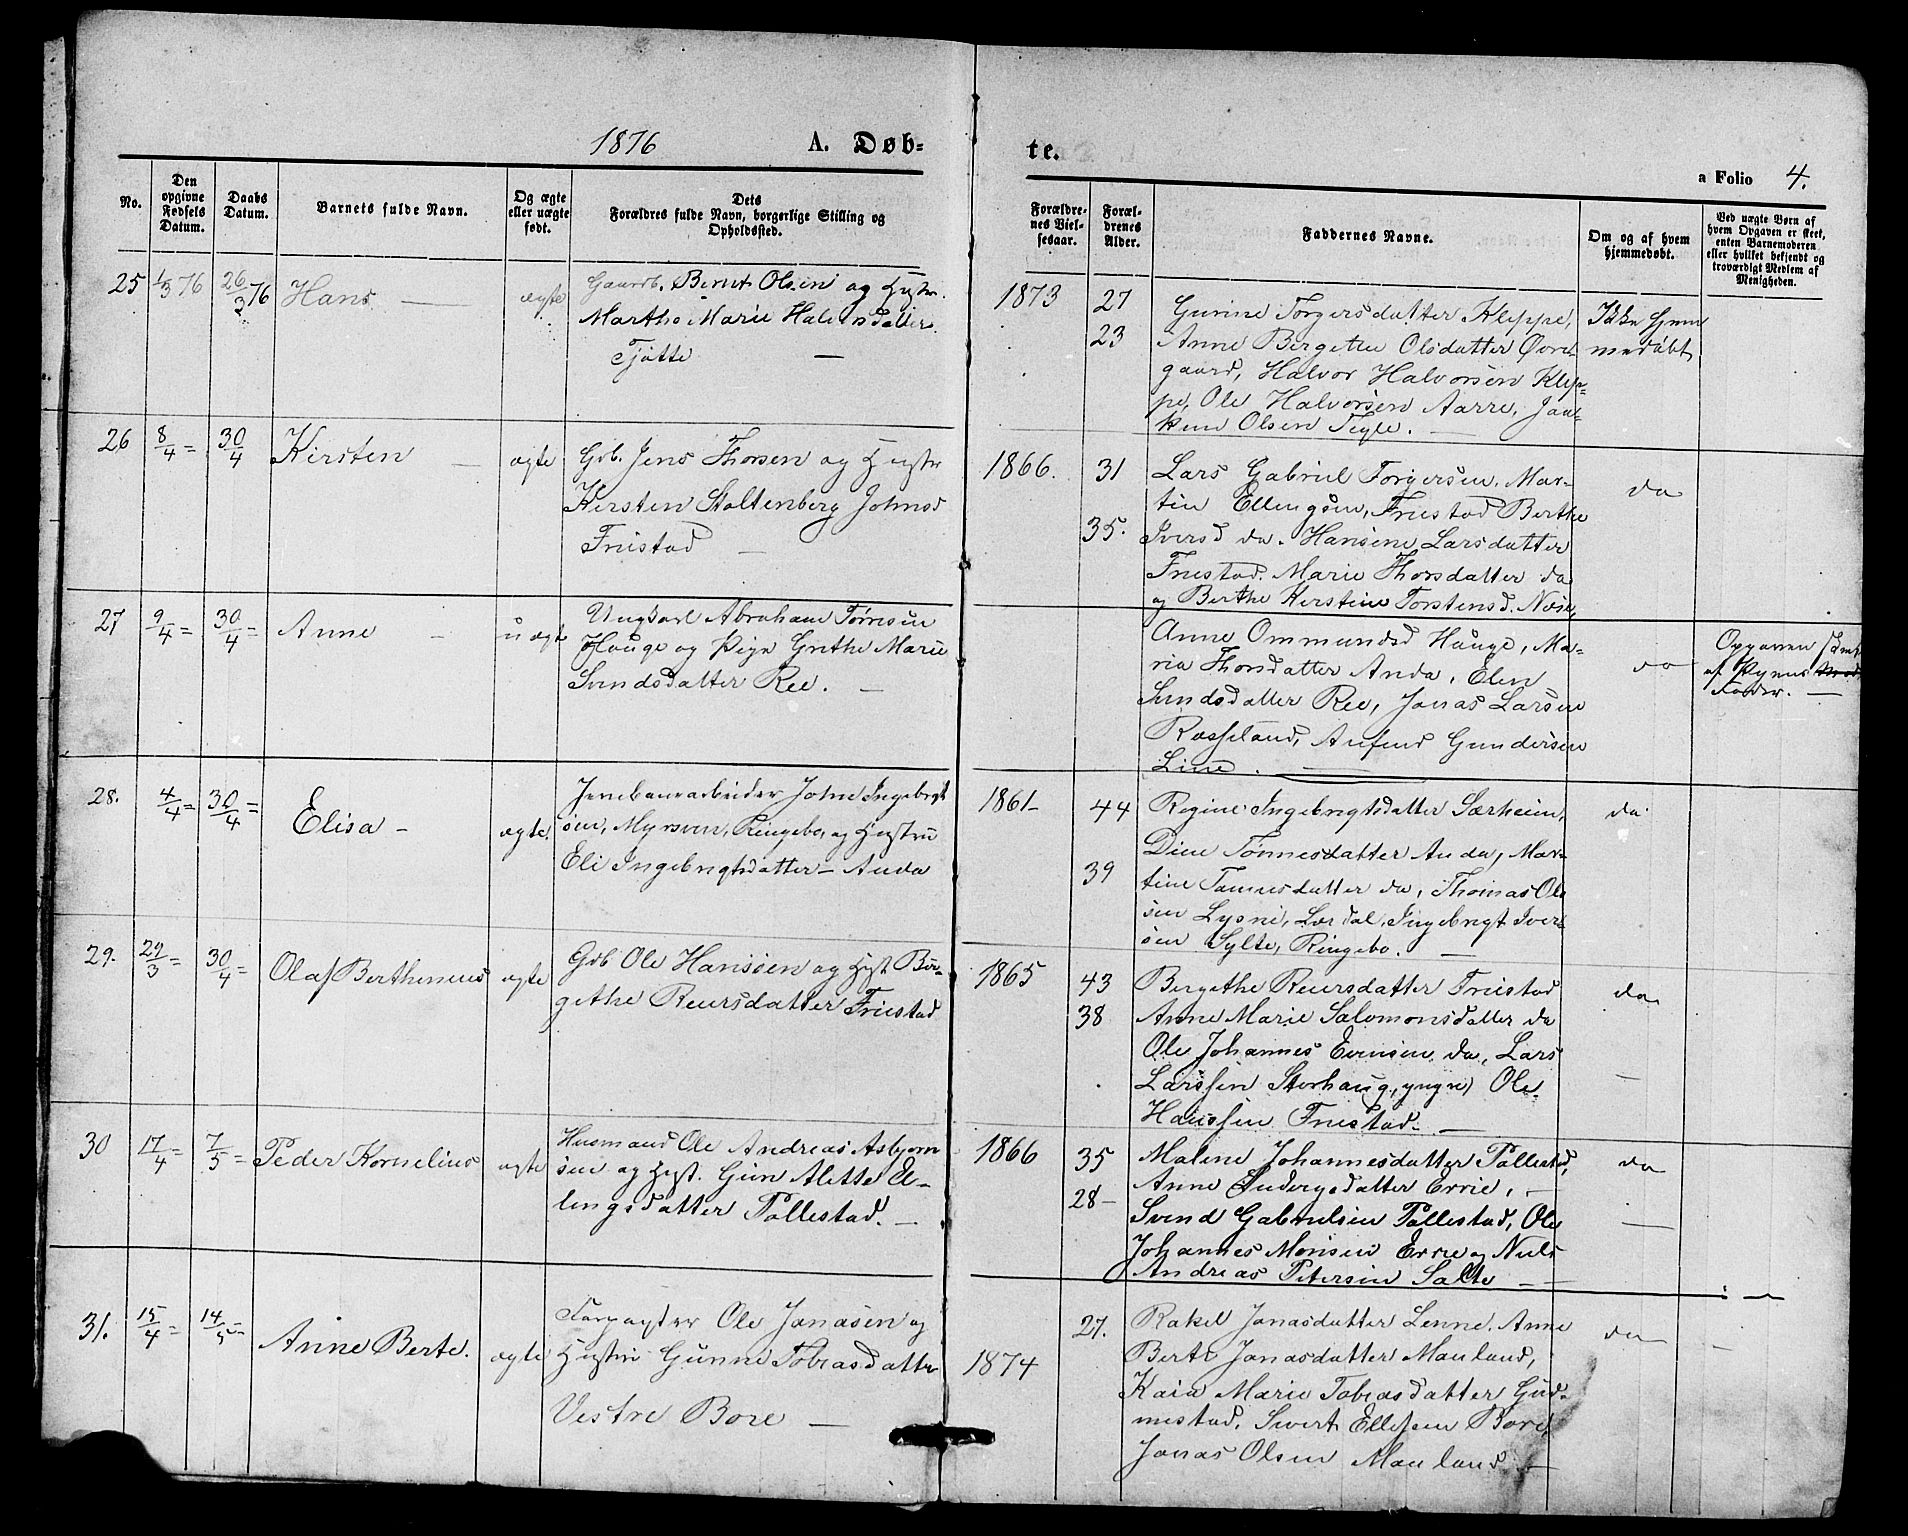 1876 A. Døb-
te.
a Folio 4.
No.
Den opgivne Fødsels Datum.
Daabs Datum.
Barnets fulde Navn.
Og ægte eller uægte født.
Dets Forældres fulde Navn, borgerlige Stilling og Opholdssted.
Forældrenes Vielsesaar.
Forældrenes Alder.
Faddernes Navne.
Om og af hvem hjemmedøbt.
Ved uægte Børn af hvem Opgaven er skeet, enten Barnemoderen eller hvilket bekjendt og troværdigt Medlem af Menigheden.
25 1/3 76 26/3 76 Hans — ægte
Gaardb. Bernt Olsen og Hustr.
Marthe Marie Halvorsdatter
Tjøtte —
1873 27
23
Gurine Torgersdatter Kleppe,
Anne Bergitte Olsdatter Øvre-
gaard, Halvor Halvorsen Klep-
pe, Ole Halvorsen Aarre, Joa-
kim Olsen Tigle. —
Ikke hjem
medøbt
26 8/4 = 30/4 Kirsten — ægte
Grb. Jens Thorsen og Hustr
Kirsten Stoltenberg Johnsd
Friestad —
1866. 31
35.
Lars Gabriel Torgersen, Mar-
tin Ellingsen, Friestad Berthe
Iversd do. Hansine Larsdatter
Friestad. Marie Thorsdatter do
og Berthe Kirstine Torstensd. Næse,
do
27 9/4 = 30/4 = Anne — uægte
Ungkarl Abraham Tørresen
Hauge og Pige Grethe Marie
Svendsdatter Ree. —
Anne Ommundsd Hauge, Ma-
ria Thorsdatter Anda, Elen
Svendsdatter Ree, Jonas Larsen
Rosseland, Anfind Gundersen
Line. —
do
Opgaven skeet
af Pigens
Fader. —
28. 4/4 = 30/4 = Elisa — ægte.
Jernbanearbeider John Ingebrigt
sen, Myrsven, Ringebo, og Hustru
Eli Ingebrigtsdatter — Anda
1861— 44
39
Regine Ingebrigtsdatter Særheim,
Dine Tønnesdatter Anda, Mar-
tine Tønnesdatter do, Thomas Ole
sen Lysne, Lærdal, Ingebrigt Iver
sen Sylte, Ringebo. —
do
29. 29/3 = 30/4 = Olaf Berthinius ægte
Grb Ole Hanssen og Hust Ber-
gethe Reiersdatter Friestad
1865 43
38
Bergethe Reiersdatter Friestad
Anne Marie Salomonsdatter do
Ole Johannes Evensen do, Lars
Larssen Storhaug, yngre, Ole
Hanssen Friestad. —
do
—
30 17/4 = 7/5 = Peder Kornelius ægte
Husmand Ole Andreas Asbjørn
sen og Hust. Guri Alette El-
lingsdatter Pollestad. —
1866 35
28—
Malene Johannesdatter Pollestad,
Anne Endersdatter Errie, —
Svend Gabrielsen Pollestad, Ole
Johannes Monsen Errie og Niels
Andreas Petersen Salte — —
do
—
31. 15/4 = 14/5 = Anne Berte. ægte
Forpagter Ole Jonasen og
Hustru Gunne Tobiasdatter
Vestre Bore —
1874 27.
Rakel Jonasdatter Lenne, Anne
Berte Jonasdatter Mauland,
Kaia Marie Tobiasdatter Gud-
mestad, Sivert Ellefsen Bore,
Jonas Olsen Mauland —
do